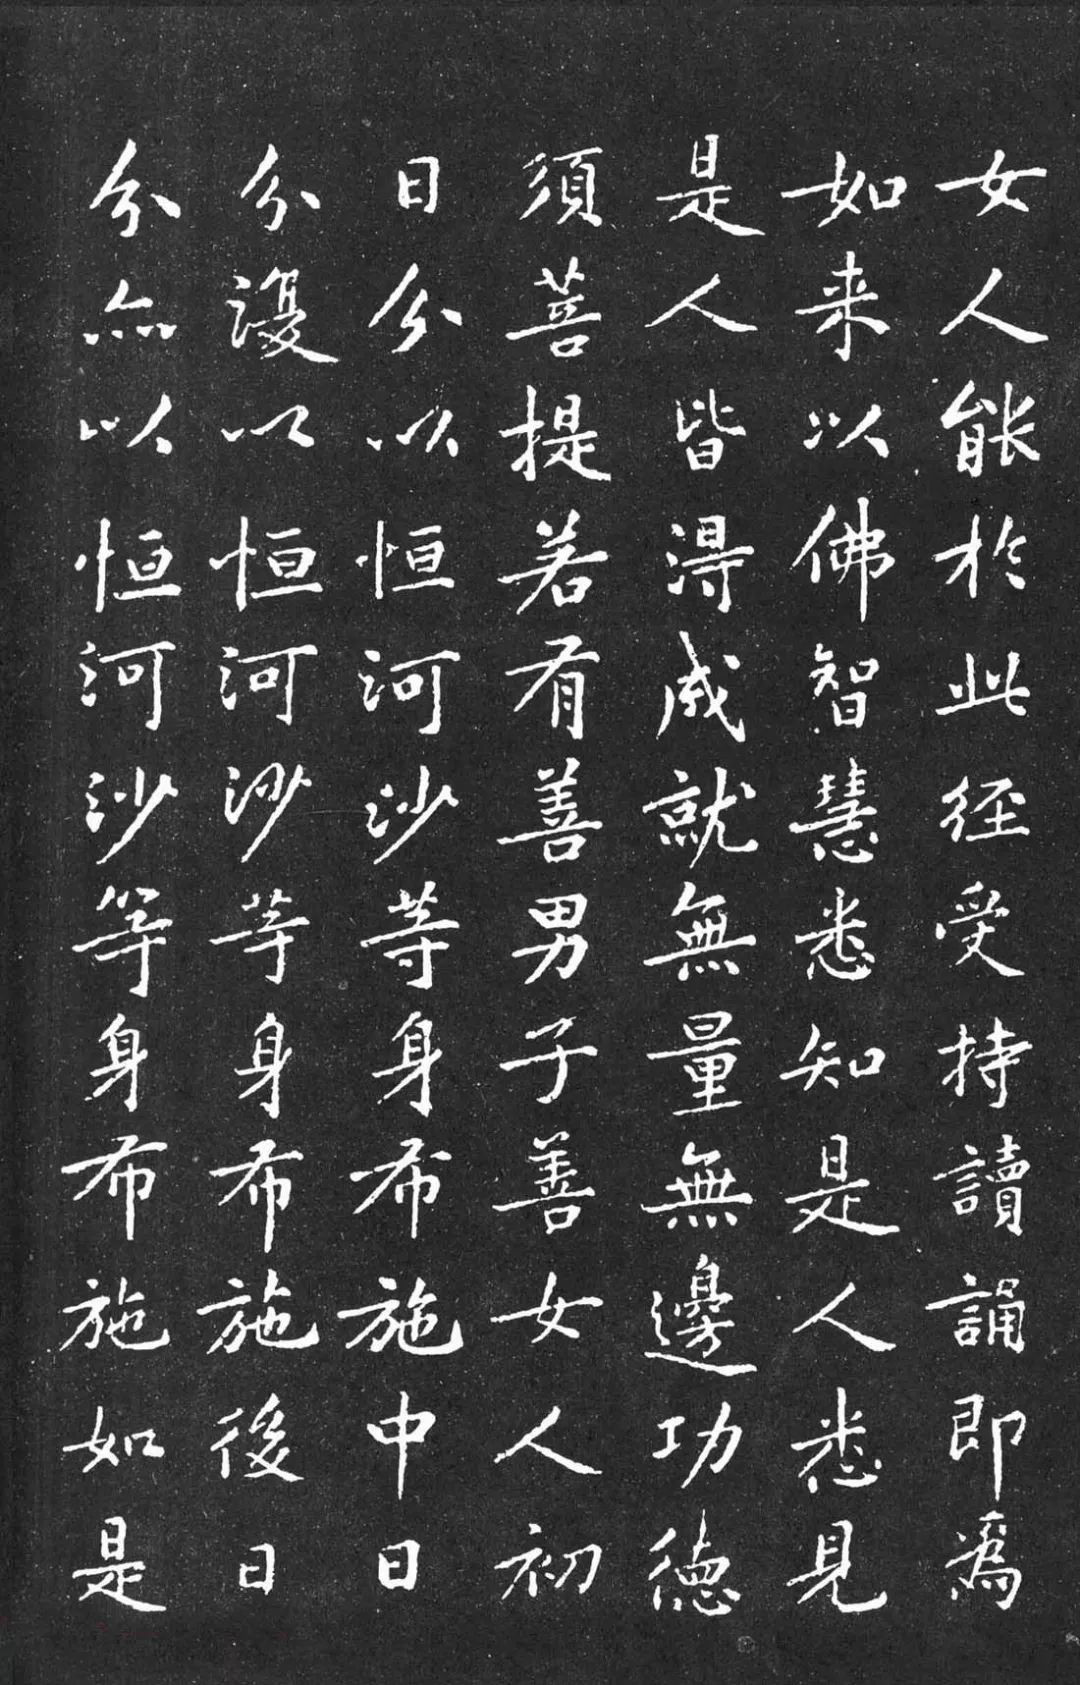 女人能於此径受持讀誦即為
如来以佛智慧悉知是人悉見
是人皆淂成就無量無邊功徳
須菩提若有善男子善女人初
日分以恒河沙等身布施中日
分澓以恒河沙等身布施後日
分亦以恒河沙等身布施如是